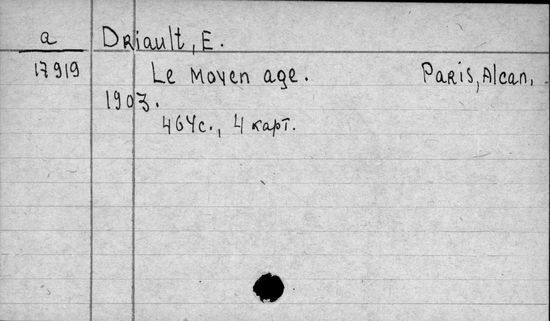 a Driault, E.
17919 Le Moyen age. Paris, Alcan,
1903.
464с., 4 карт.